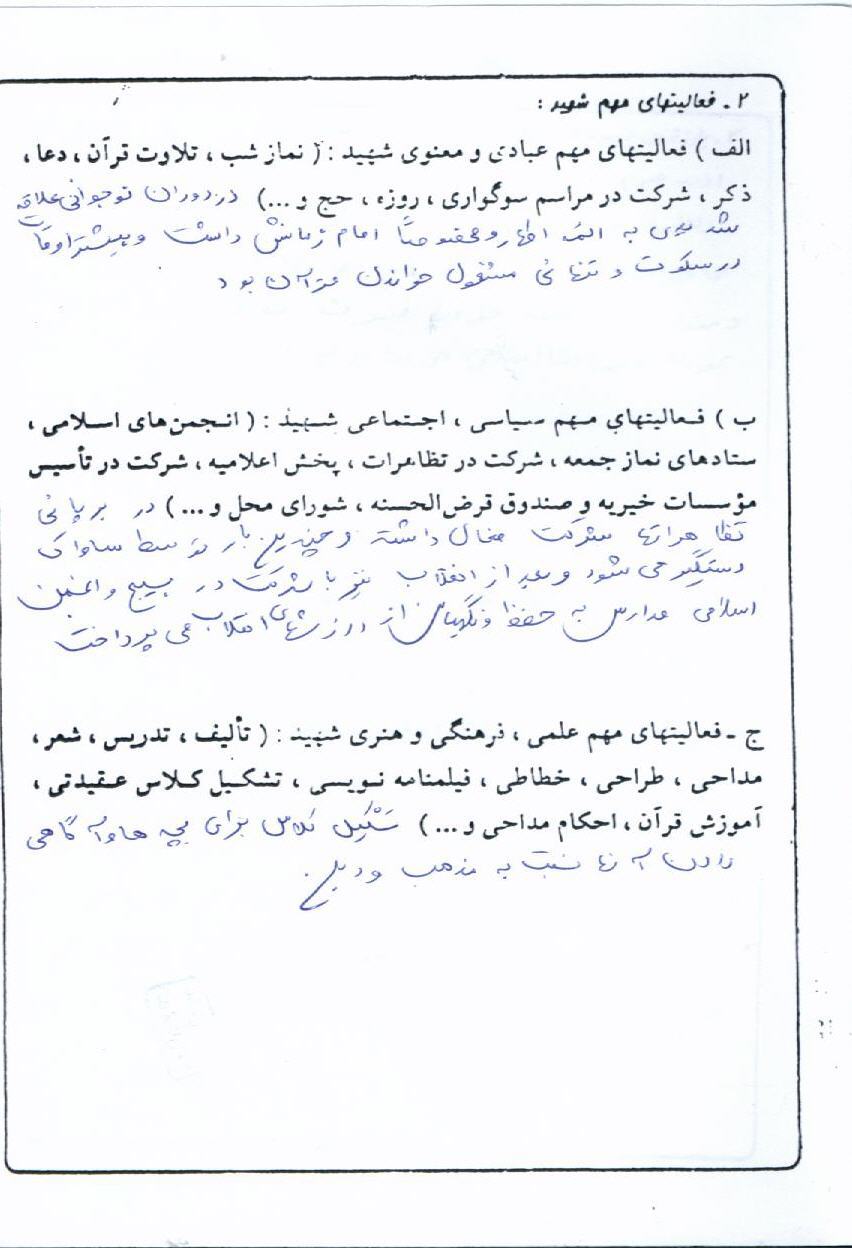 ۲ ـ فعالیتهای مهم شهید :
الف ) فعالیتهای مهم عبادی و معنوی شهید : ( نماز شب ، تلاوت قرآن ، دعا ،
ذکر ، شرکت در مراسم سوگواری ، روزه ، حج و ...) در دوران نوجوانی علاقه
شدیدی به ائمه اطهار و مخصوصاً امام زمانش داشت و بیشتر اوقات
در سکوت و تنهائی مشغول خواندن قرآن بود
ب ) فـعالیتهای مـهم سیاسی ، اجـتماعی شـهید : ( انـجمن‌های اسـلامی ،
ستادهای نماز جمعه ، شرکت در تظاهرات ، پخش اعلامیه ، شرکت در تأسیس
مؤسسات خیریه و صندوق قرض‌الحسنه ، شورای محل و ... ) در برپائی
تظاهراتها شرکت فعال داشته و چندین بار توسط ساواک
دستگیر می شود و بعد از انقلاب نیز با شرکت در بسیج و انجمن
اسلامی مدارس به حفظ و نگهبانی از ارزشهای انقلاب می پرداخت
ج ـ فعالیتهای مهم علمی ، فرهنگی و هنری شهید : ( تألیف ، تدریس ، شعر ،
مداحی ، طراحی ، خطاطی ، فیلمنامه نـویسی ، تشکـیل کـلاس عـقیدتی ،
آموزش قرآن ، احکام مداحی و ... ) تشکیل کلاس برای بچه ها و آگاهی
دادن آنها نسبت به مذهب و دین.